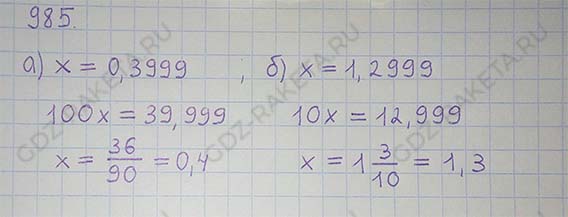 985.
а) x = 0,3999 ; б) x = 1,2999
100x = 39,999 10x = 12,999
x = 36/90 = 0,4 x = 1 3/10 = 1,3
GDZ-RAKETA.RU
GDZ-RAKETA.RU
GDZ-RAKETA.RU